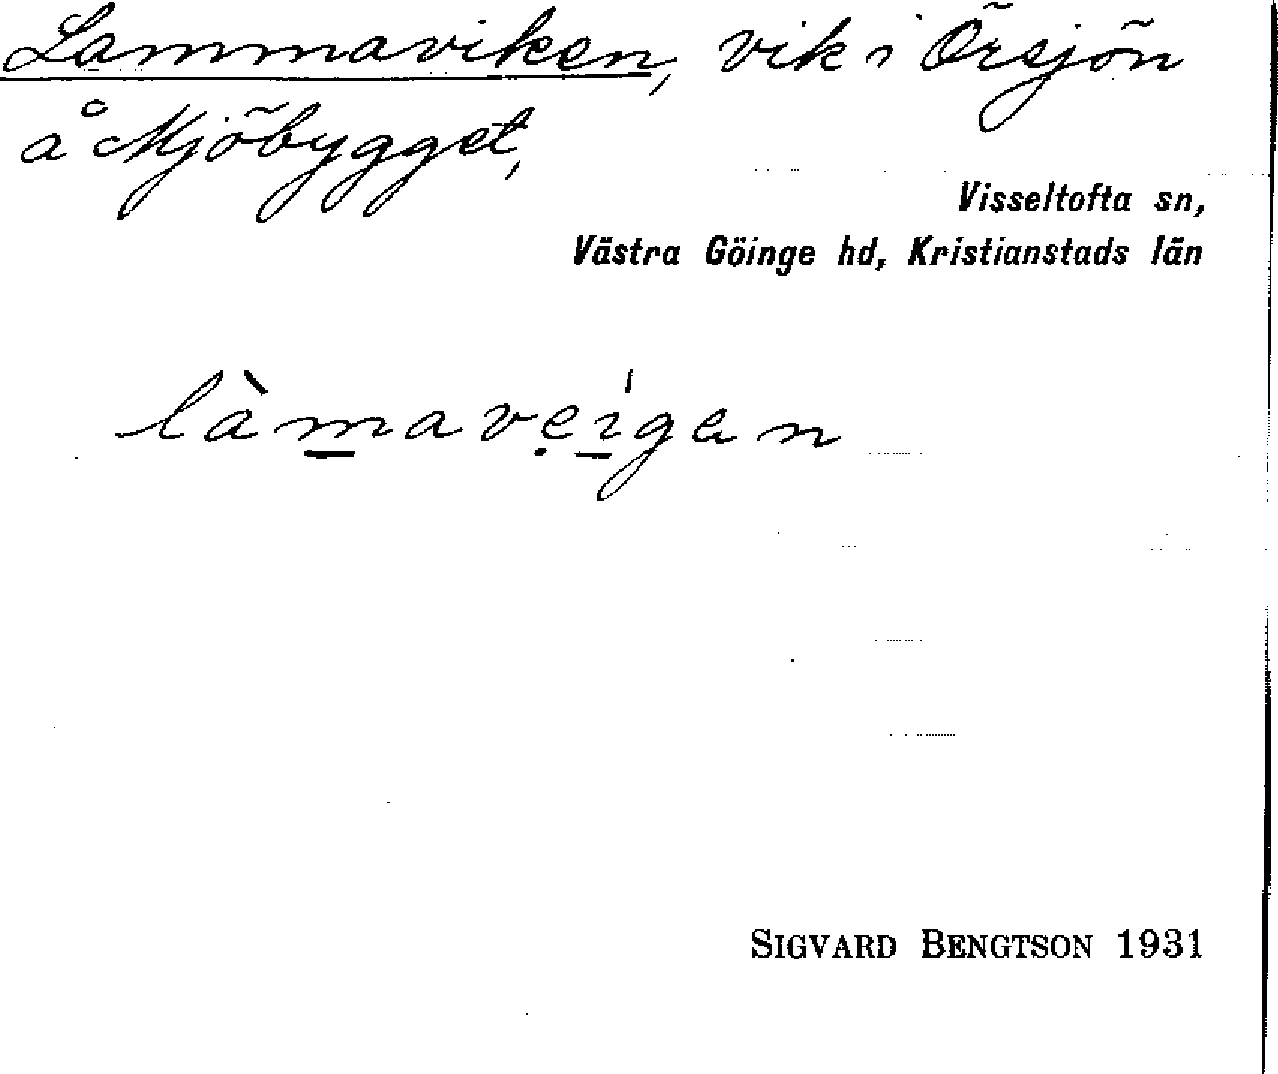 Lammaviken, vik i Örsjön
å Mjöbygget,
Visseltofta sn,
Västra Göinge hd, Kristianstads län
làmavẹí̱gen
SIGVARD BENGTSON 1931